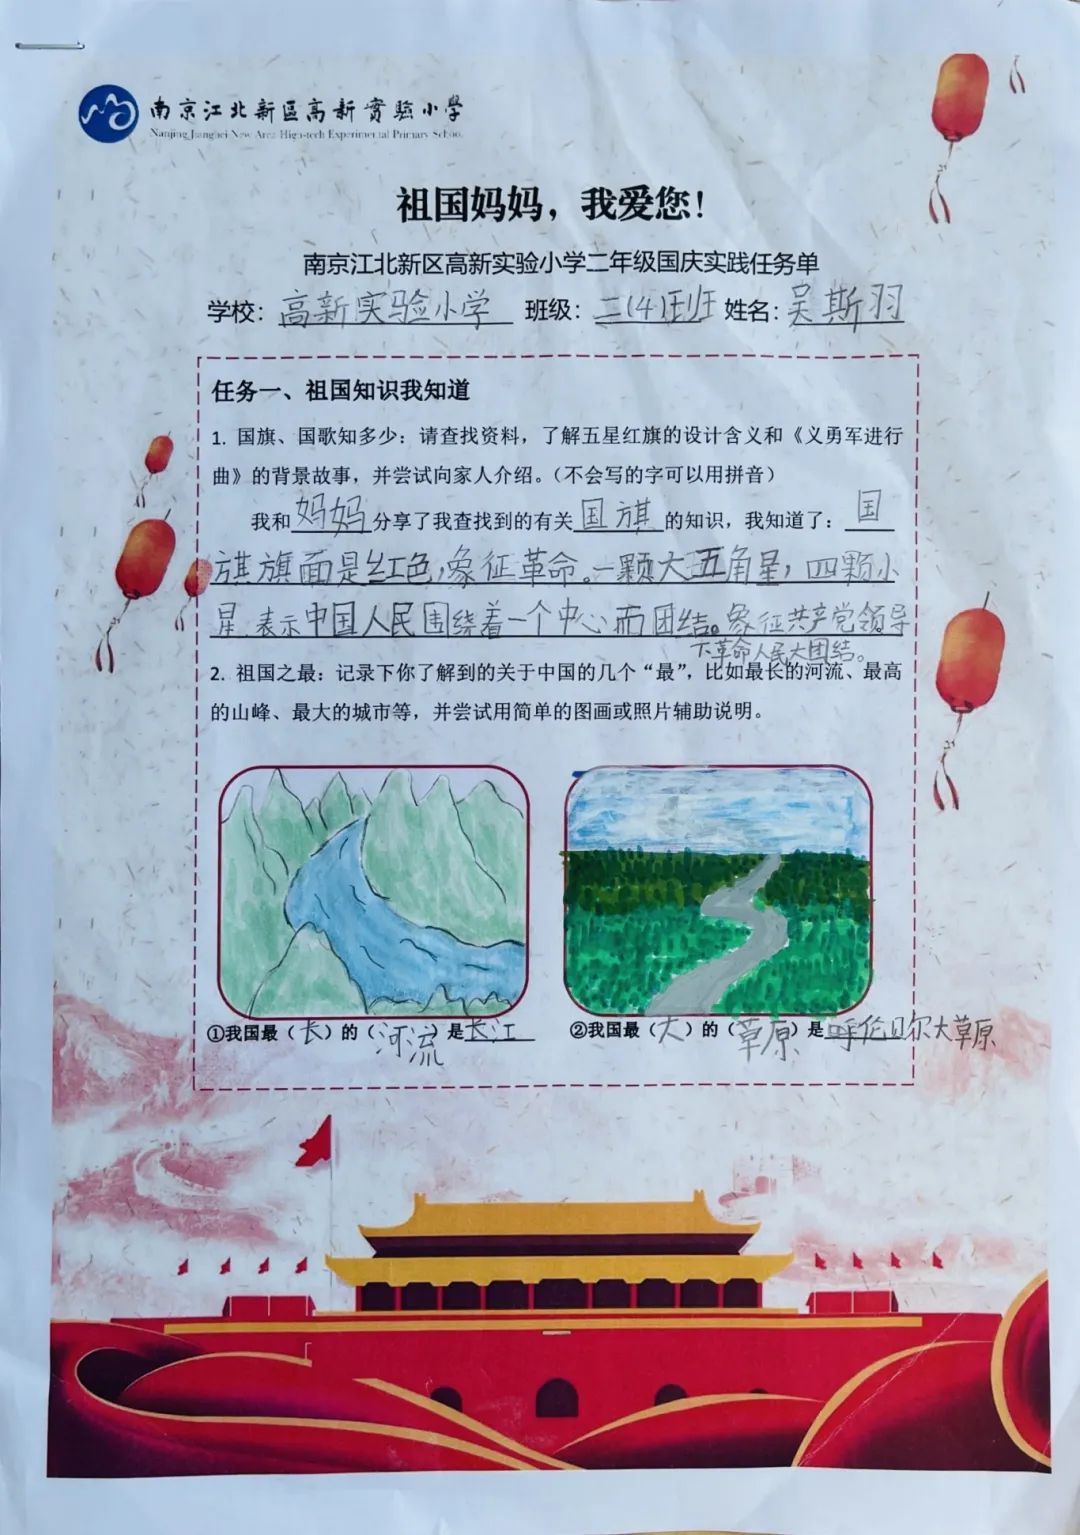 南京江北新區高新實驗小學
Nanjing Jiangbei New Area High-tech Experimental Primary School
祖国妈妈，我爱您！
南京江北新区高新实验小学二年级国庆实践任务单
学校：高新实验小学 班级：二(4)班 姓名：吴斯羽
任务一、祖国知识我知道
1. 国旗、国歌知多少：请查找资料，了解五星红旗的设计含义和《义勇军进行
曲》的背景故事，并尝试向家人介绍。（不会写的字可以用拼音）
我和妈妈分享了我查找到的有关国旗的知识，我知道了：国
旗旗面是红色，象征革命。一颗大五角星，四颗小
星表示中国人民围绕着一个中心而团结。象征共产党领导
下革命人民大团结。
2. 祖国之最：记录下你了解到的关于中国的几个“最”，比如最长的河流、最高
的山峰、最大的城市等，并尝试用简单的图画或照片辅助说明。
①我国最（长）的（河流）是长江 ②我国最（大）的（草原）是呼伦贝尔大草原